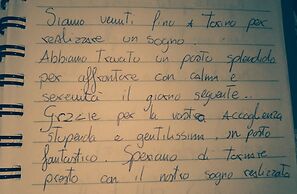 Siamo venuti fino a torino per
realizzare un sogno.
Abbiamo trovato un posto splendido
per affrontare con calma e
serenità il giorno seguente..
Grazie per la vostra accoglienza
stupenda e gentilissima, un posto
fantastico. Speriamo di tornare
presto con il nostro sogno realizzato